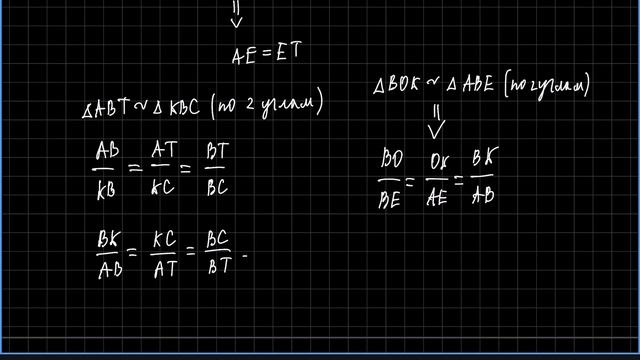 ⇓
AE = ET
△ABT ~ △KBC (по 2 углам)
AB/KB = AT/KC = BT/BC
BK/AB = KC/AT = BC/BT -
△BOK ~ △ABE (по 2 углам)
⇓
BO/BE = OK/AE = BK/AB